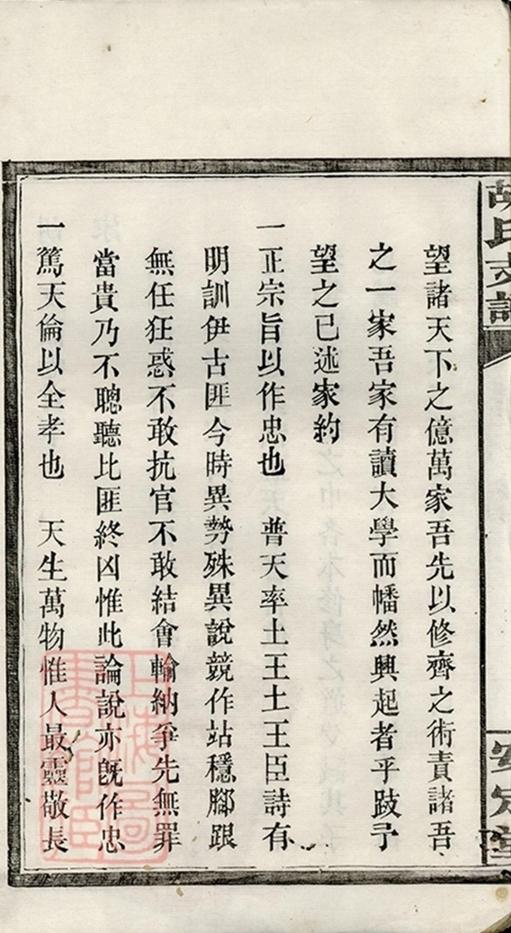 胡氏支譜
安定堂
望諸天下之億萬家吾先以修齊之術責諸吾
之一家吾家有讀大學而幡然興起者乎跂予
望之已述家約
一正宗旨以作忠也　普天率土王土王臣詩有
明訓伊古匪今時異勢殊異說競作站穩腳跟
無任狂惑不敢抗官不敢結會輸納爭先無罪
當貴乃不聰聽比匪終凶惟此論說亦既作忠
一篤天倫以全孝也　天生萬物惟人最靈敬長